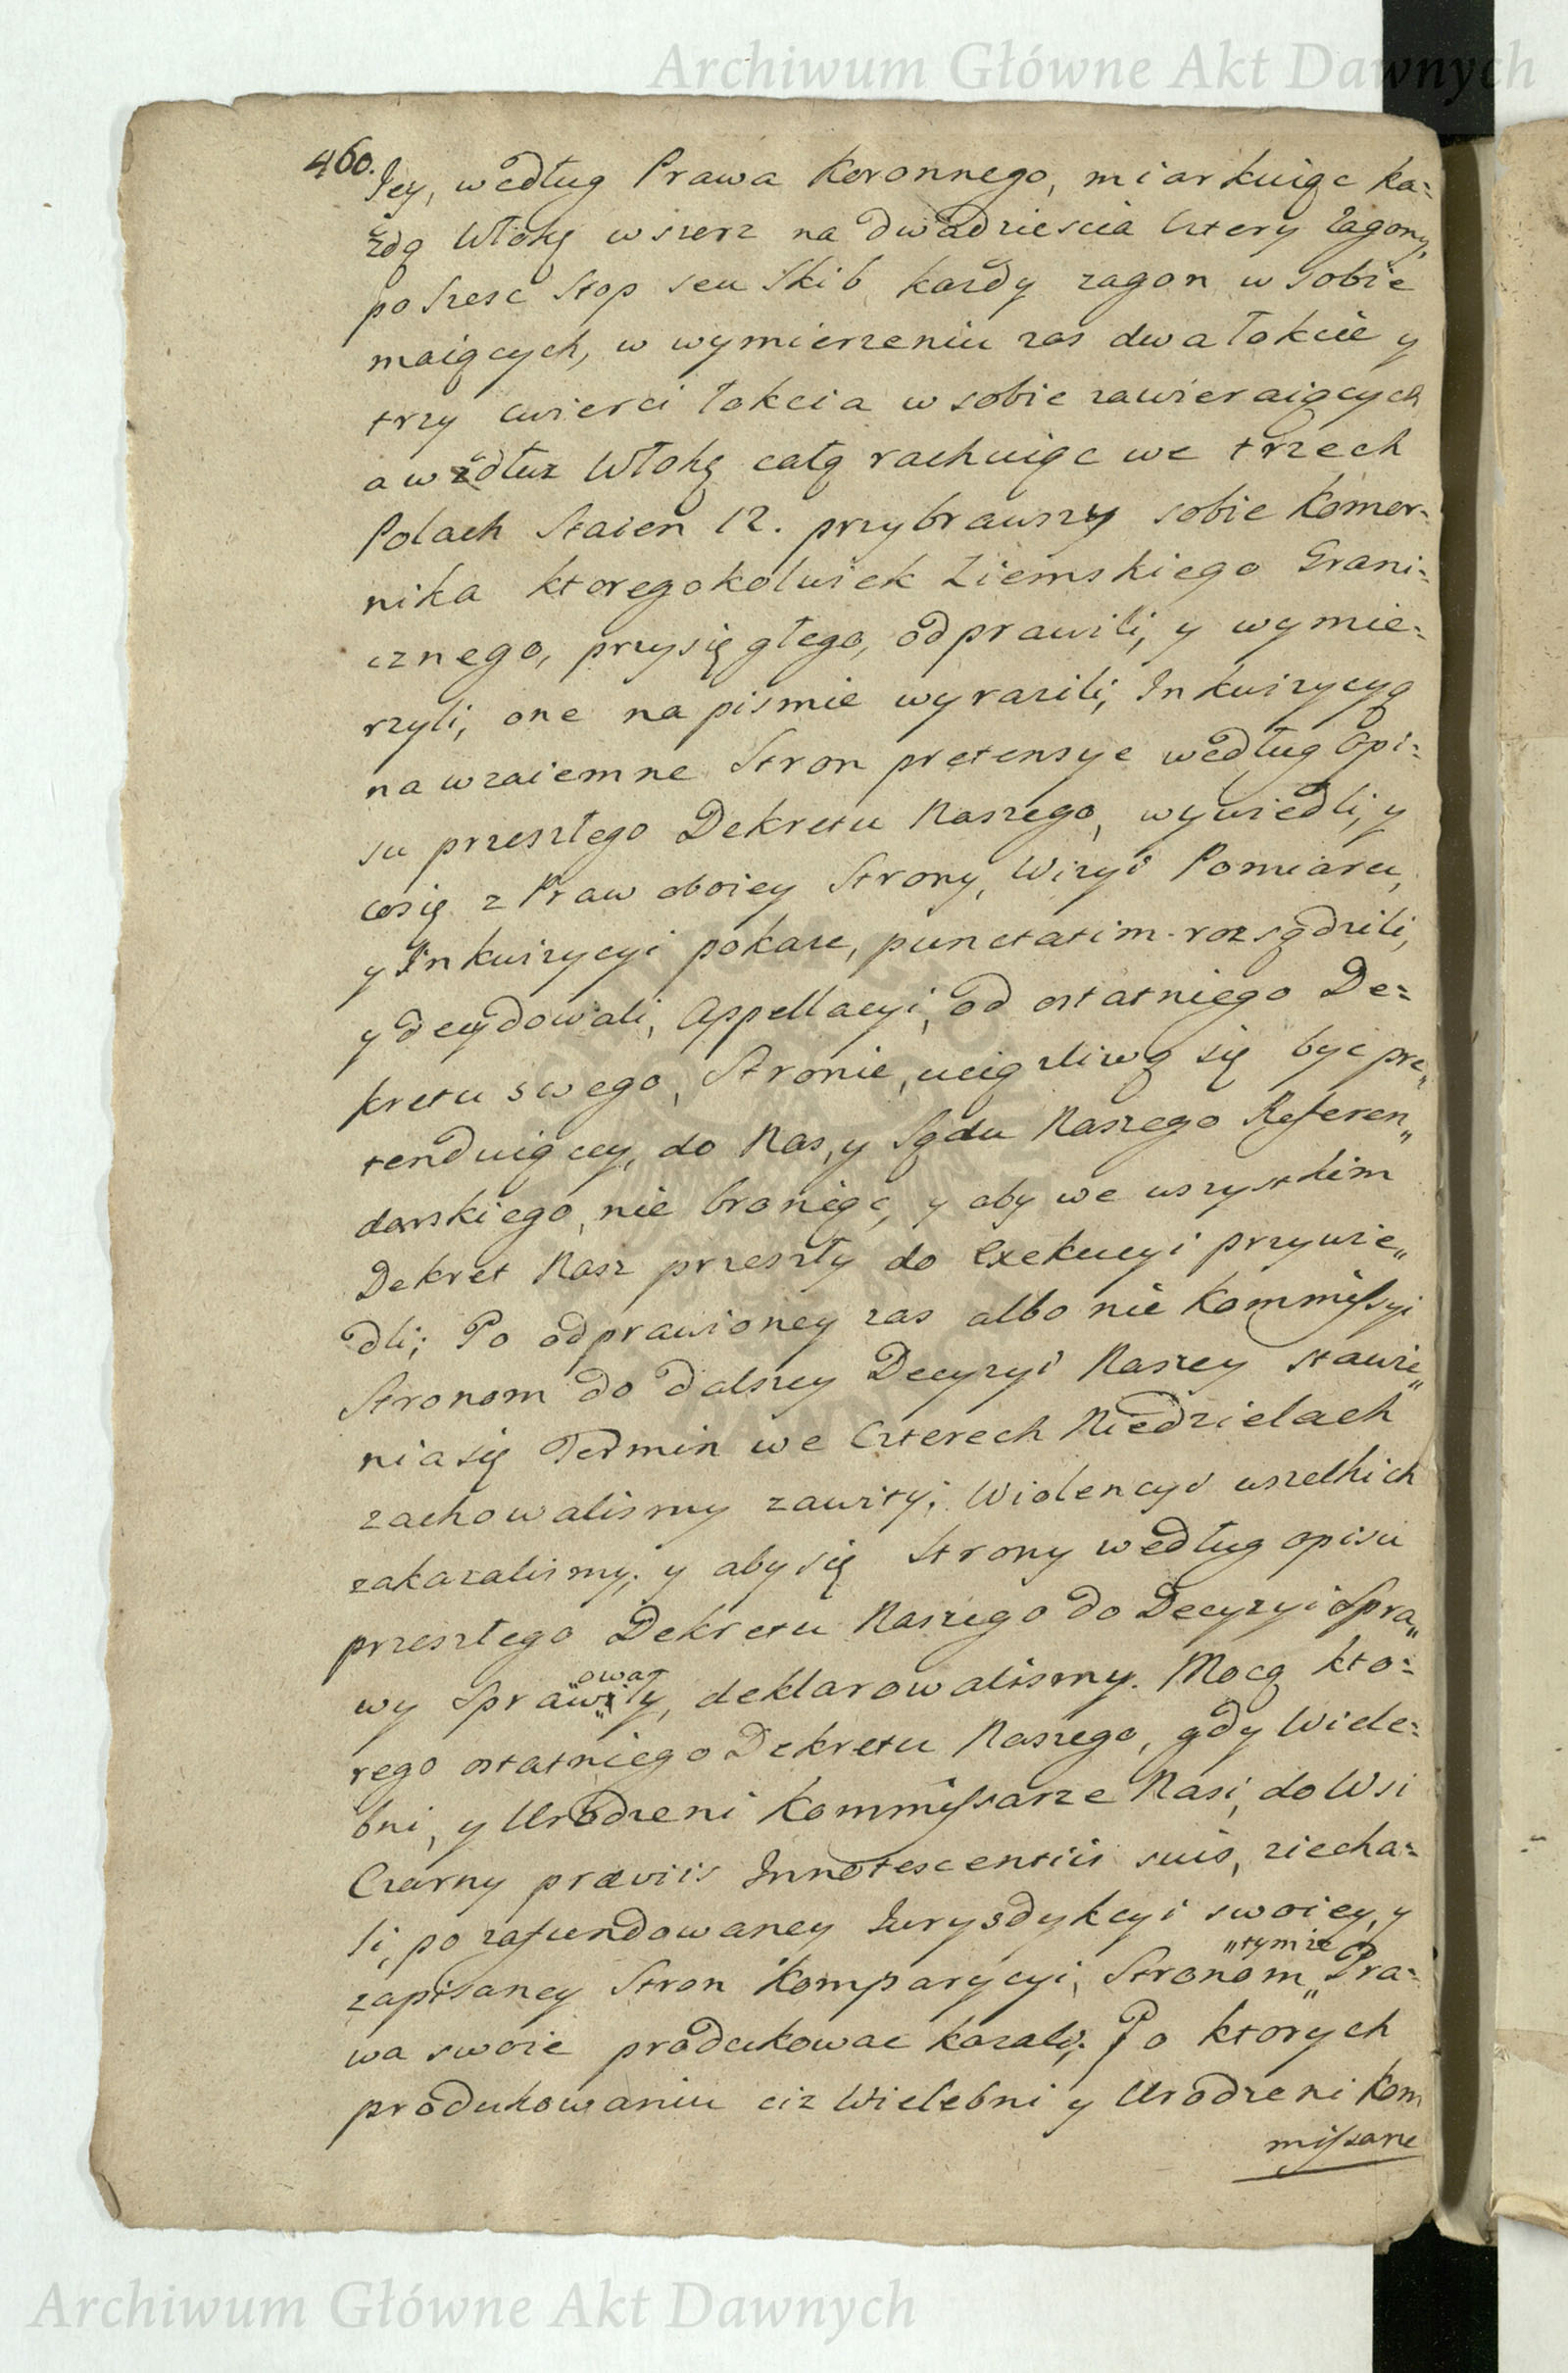 Archiwum Główne Akt Dawnych
460.
Jey, według Prawa Koronnego, miarkuiąc ka=
żdą Włokę wszerz na dwadziescia Cztery Zagony,
po szesc Stop seu Skib każdy zagon w sobie
maiących, w wymierzeniu zas dwa łokcie y
trzy cwierci łokcia w sobie zawieraiących
a wzdłuz Włokę całą rachuiąc we trzech
Polach Staien 12. przybrawszy sobie Komor=
nika ktoregokolwiek Ziemskiego Grani=
cznego, przysięgłego, odprawili, y wymie=
rzyli, one na pismie wyrazili, Inkwizycyą
na wzaiemne Stron pretensye według Opi=
su przeszłego Dekretu Naszego, wywiedli, y
co się z Praw oboiey Strony, Wizyi Pomiaru,
y Inkwizycyi pokaze, punctatim rozsądzili,
y decydowali, Appellacyi, od ostatniego De=
kretu swego, Stronie, uciązliwą się byc pre„
tenduiącey, do Nas, y Sądu Naszego Referen„
darskiego, nie broniąc, y aby we wszystkim
Dekret Nasz przeszły do Exekucyi przywie„
dli; Po odprawioney zas albo nie Kommissyi
Stronom do dalszey Decyzyi Naszey stawie„
nia się Termin we Czterech Niedzielach
zachowalismy zawity; Wiolencyi wszelkich
zakazalismy; y aby się Strony według opisu
przeszłego Dekretu Naszego do Decyzyi Spra„
owa
wy Sprawiły, deklarowalismy. Mocą kto=
rego ostatniego Dekretu Naszego, gdy Wiele=
bni, y Urodzeni Kommissarze Nasi, do Wsi
Czarny præviis Innotescentiis suis, ziecha=
li, po zafundowaney Jurysdykcyi swoiey, y
„tymze
zapisaney Stron Komparycyi, Stronom„ Pra=
wa swoie produkowac kazali; Po ktorych
produkowaniu ciz Wielebni y Urodzeni Kom
missarze
Archiwum Główne Akt Dawnych